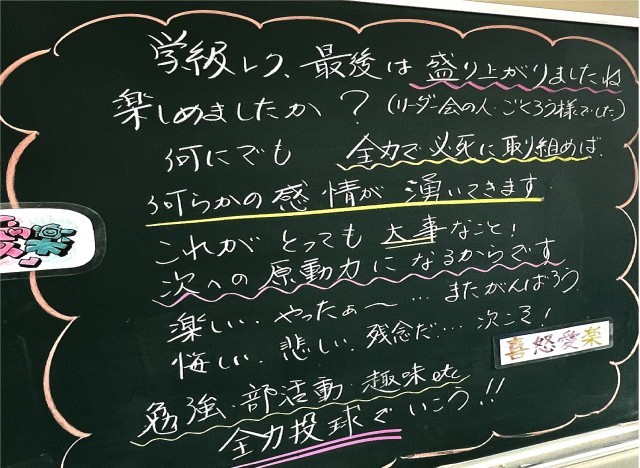 学級レク、最後は盛り上がりましたね
楽しめましたか？（リーダー会の人・ごくろう様でした）
何にでも 全力で必死に取り組めば、
何らかの感情が湧いてきます
これがとっても大事なこと！
次への原動力になるからです
楽しい、やったぁ〜…またがんばろう
悔しい、悲しい、残念だ…次こそ！
喜怒愛楽
勉強・部活動・趣味etc
全力投球でいこう!!